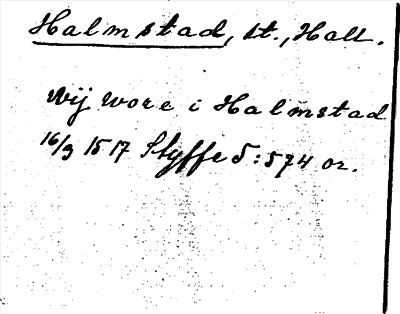 Halmstad, st., Hall.
Wij wore i Halmstad
16/9 1517 Styffe 5:574 or.